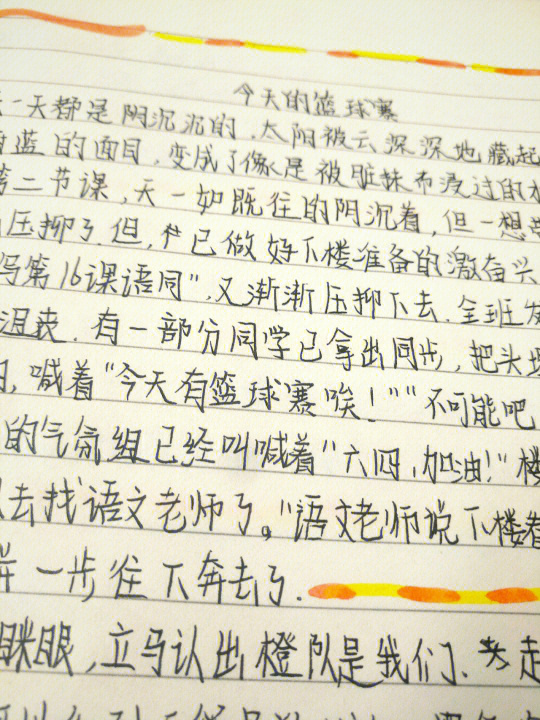 今天的篮球赛
一天都是阴沉沉的，太阳被云深深地藏起
蓝的面目，变成了像是被脏抹布浸过的
第二节课，天一如既往的阴沉着，但一想
压抑了.但，已做好下楼准备的激奋兴
第16课语同”，又渐渐压抑下去.全班发
沮丧.有一部分同学已拿出同步，把头埋
喊着“今天有篮球赛唉！”“不可能吧
的气氛组已经叫喊着“六四，加油！”楼
去找语文老师了。“语文老师说下楼看
一步往下奔去了.
眯眼，立马认出橙队是我们.